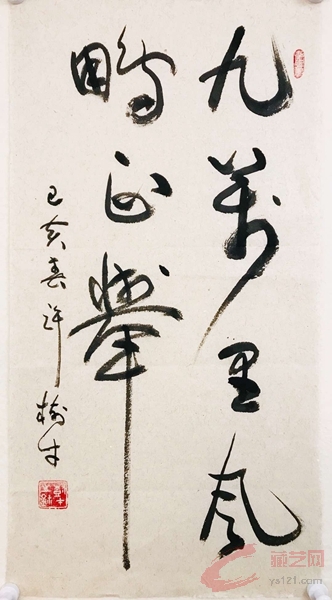 九萬里風
鵬正舉
己亥春許樹才
藏艺网
ys121.com